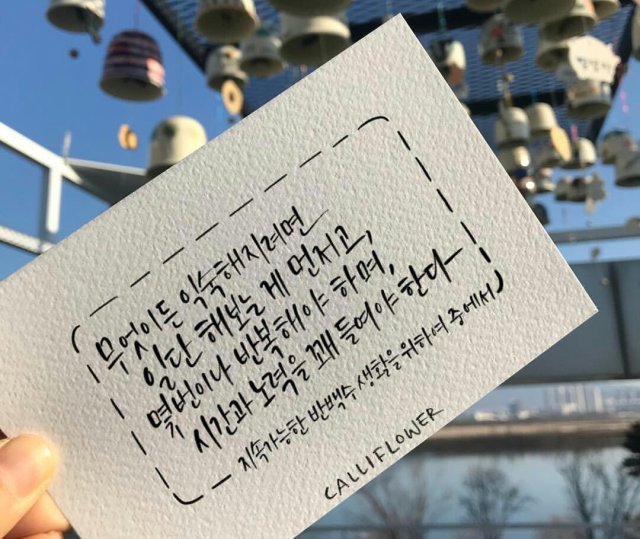 무엇이든 익숙해지려면
일단 해보는 게 먼저고,
몇번이나 반복해야 하며,
시간과 노력을 꽤 들여야 한다
지속가능한 반백수 생활을 위하여 중에서
CALLIFLOWER